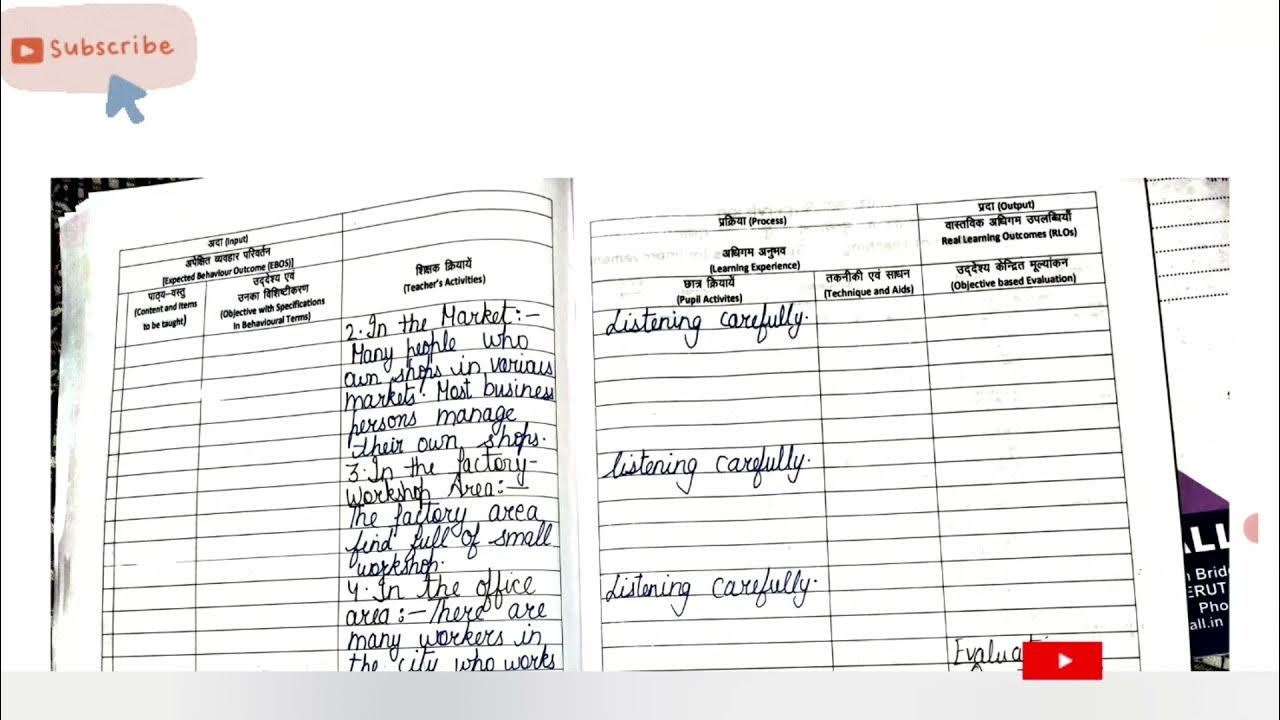 Subscribe
अदा (Input)
अपेक्षित व्यवहार परिवर्तन
[Expected Behaviour Outcome (EBOS)]
पाठ्य-वस्तु
(Content and Items
to be taught)
उद्देश्य एवं
उनका विशिष्टीकरण
(Objective with Specifications
In Behavioural Terms)
शिक्षक क्रियायें
(Teacher's Activities)
2. In the Market:-
Many people who
own shops in various
markets. Most business
persons manage
their own shops.
3. In the factory-
Workshop Area:-
The factory area
find full of small
workshop.
4. In the office
area:- There are
many workers in
the city who works
प्रक्रिया (Process)
अधिगम अनुभव
(Learning Experience)
छात्र क्रियायें
(Pupil Activites)
तकनीकी एवं साधन
(Technique and Aids)
प्रदा (Output)
वास्तविक अधिगम उपलब्धियाँ
Real Learning Outcomes (RLOs)
उद्देश्य केन्द्रित मूल्यांकन
(Objective based Evaluation)
Listening carefully.
listening carefully.
Listening carefully.
ALL
Brid
ERUT
Pho
all.in